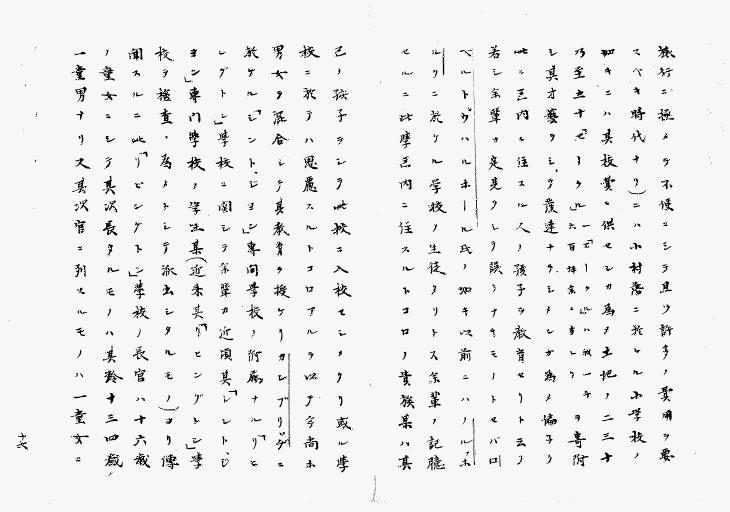 旅行ニ極メテ不便ニシテ且ツ許多ノ費用ヲ要
スベキ時代ナリ)ニハ小村落ニ於ケル小学校ノ
如キニハ其校費ニ供センカ為メ土地ノ二三十
乃至五十「セートル」ヲ寄附
シ其才藝ヲシテ發達ナラシメンガ為メ偏ヨリ
此ニ邑内ニ住スル人ノ孩子ヲ教育セリト云フ
若シ余輩カ是見タシテ誤ミナキモノトセバロ
ベルト、ヴハルホール氏ノ如キ以前ニハノルホ
ルクニ於ケル学校ノ生徒タリトス余輩ノ記臆
セルニ此學邑内ニ住スルトコロノ貴族某ハ其
己ノ孩子ヲシテ此校ニ入校セシメタリ或ル學
校ニ於テハ思慮スルトコロアルヲ以テ今尚ホ
男女ヲ混合シテ其教育ヲ授ケリカンブリッヂニ
於ケル「シントジヨン」専門學校ノ附屬ナル「リヒ
ングトン」學校ニ関シテ余輩カ近頃其「シントジ
ヨン」専門學校ノ学生某(近来其「リヒングトン」學
校ヲ檢査ノ為メトシテ派出シタルモノ)ヨリ傳
聞スルニ此「リビングトン」學校ノ長官ハ十六歳
ノ童女ニシテ其次長タルモノハ其齢十三四歳
一童男ナリ又其次官ニ列スルモノハ一童女ニ
十六